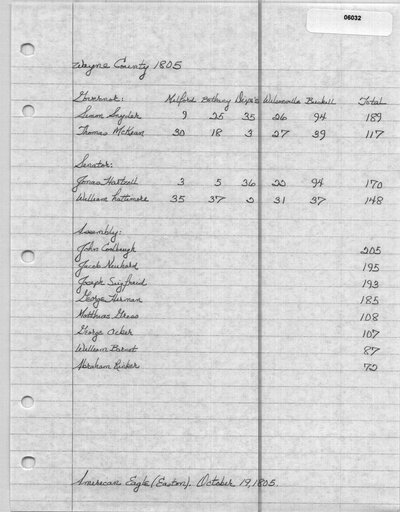 06032
Wayne County 1805
Governor: Milford Bethany Dyer's Wilsonville Buckill Total
Simon Snyder 9 25 35 26 94 189
Thomas McKean 30 18 3 27 39 117
Senator:
Jonas Hartzell 3 5 36 22 94 170
William Lattimore 35 37 2 31 37 148
Assembly:
John Coolbaugh 205
Jacob Newhard 195
Joseph Siegfried 193
George Herman 185
Matthias Gress 108
George Acker 107
William Barnet 87
Abraham Rinker 72
American Eagle (Easton). October 19, 1805.